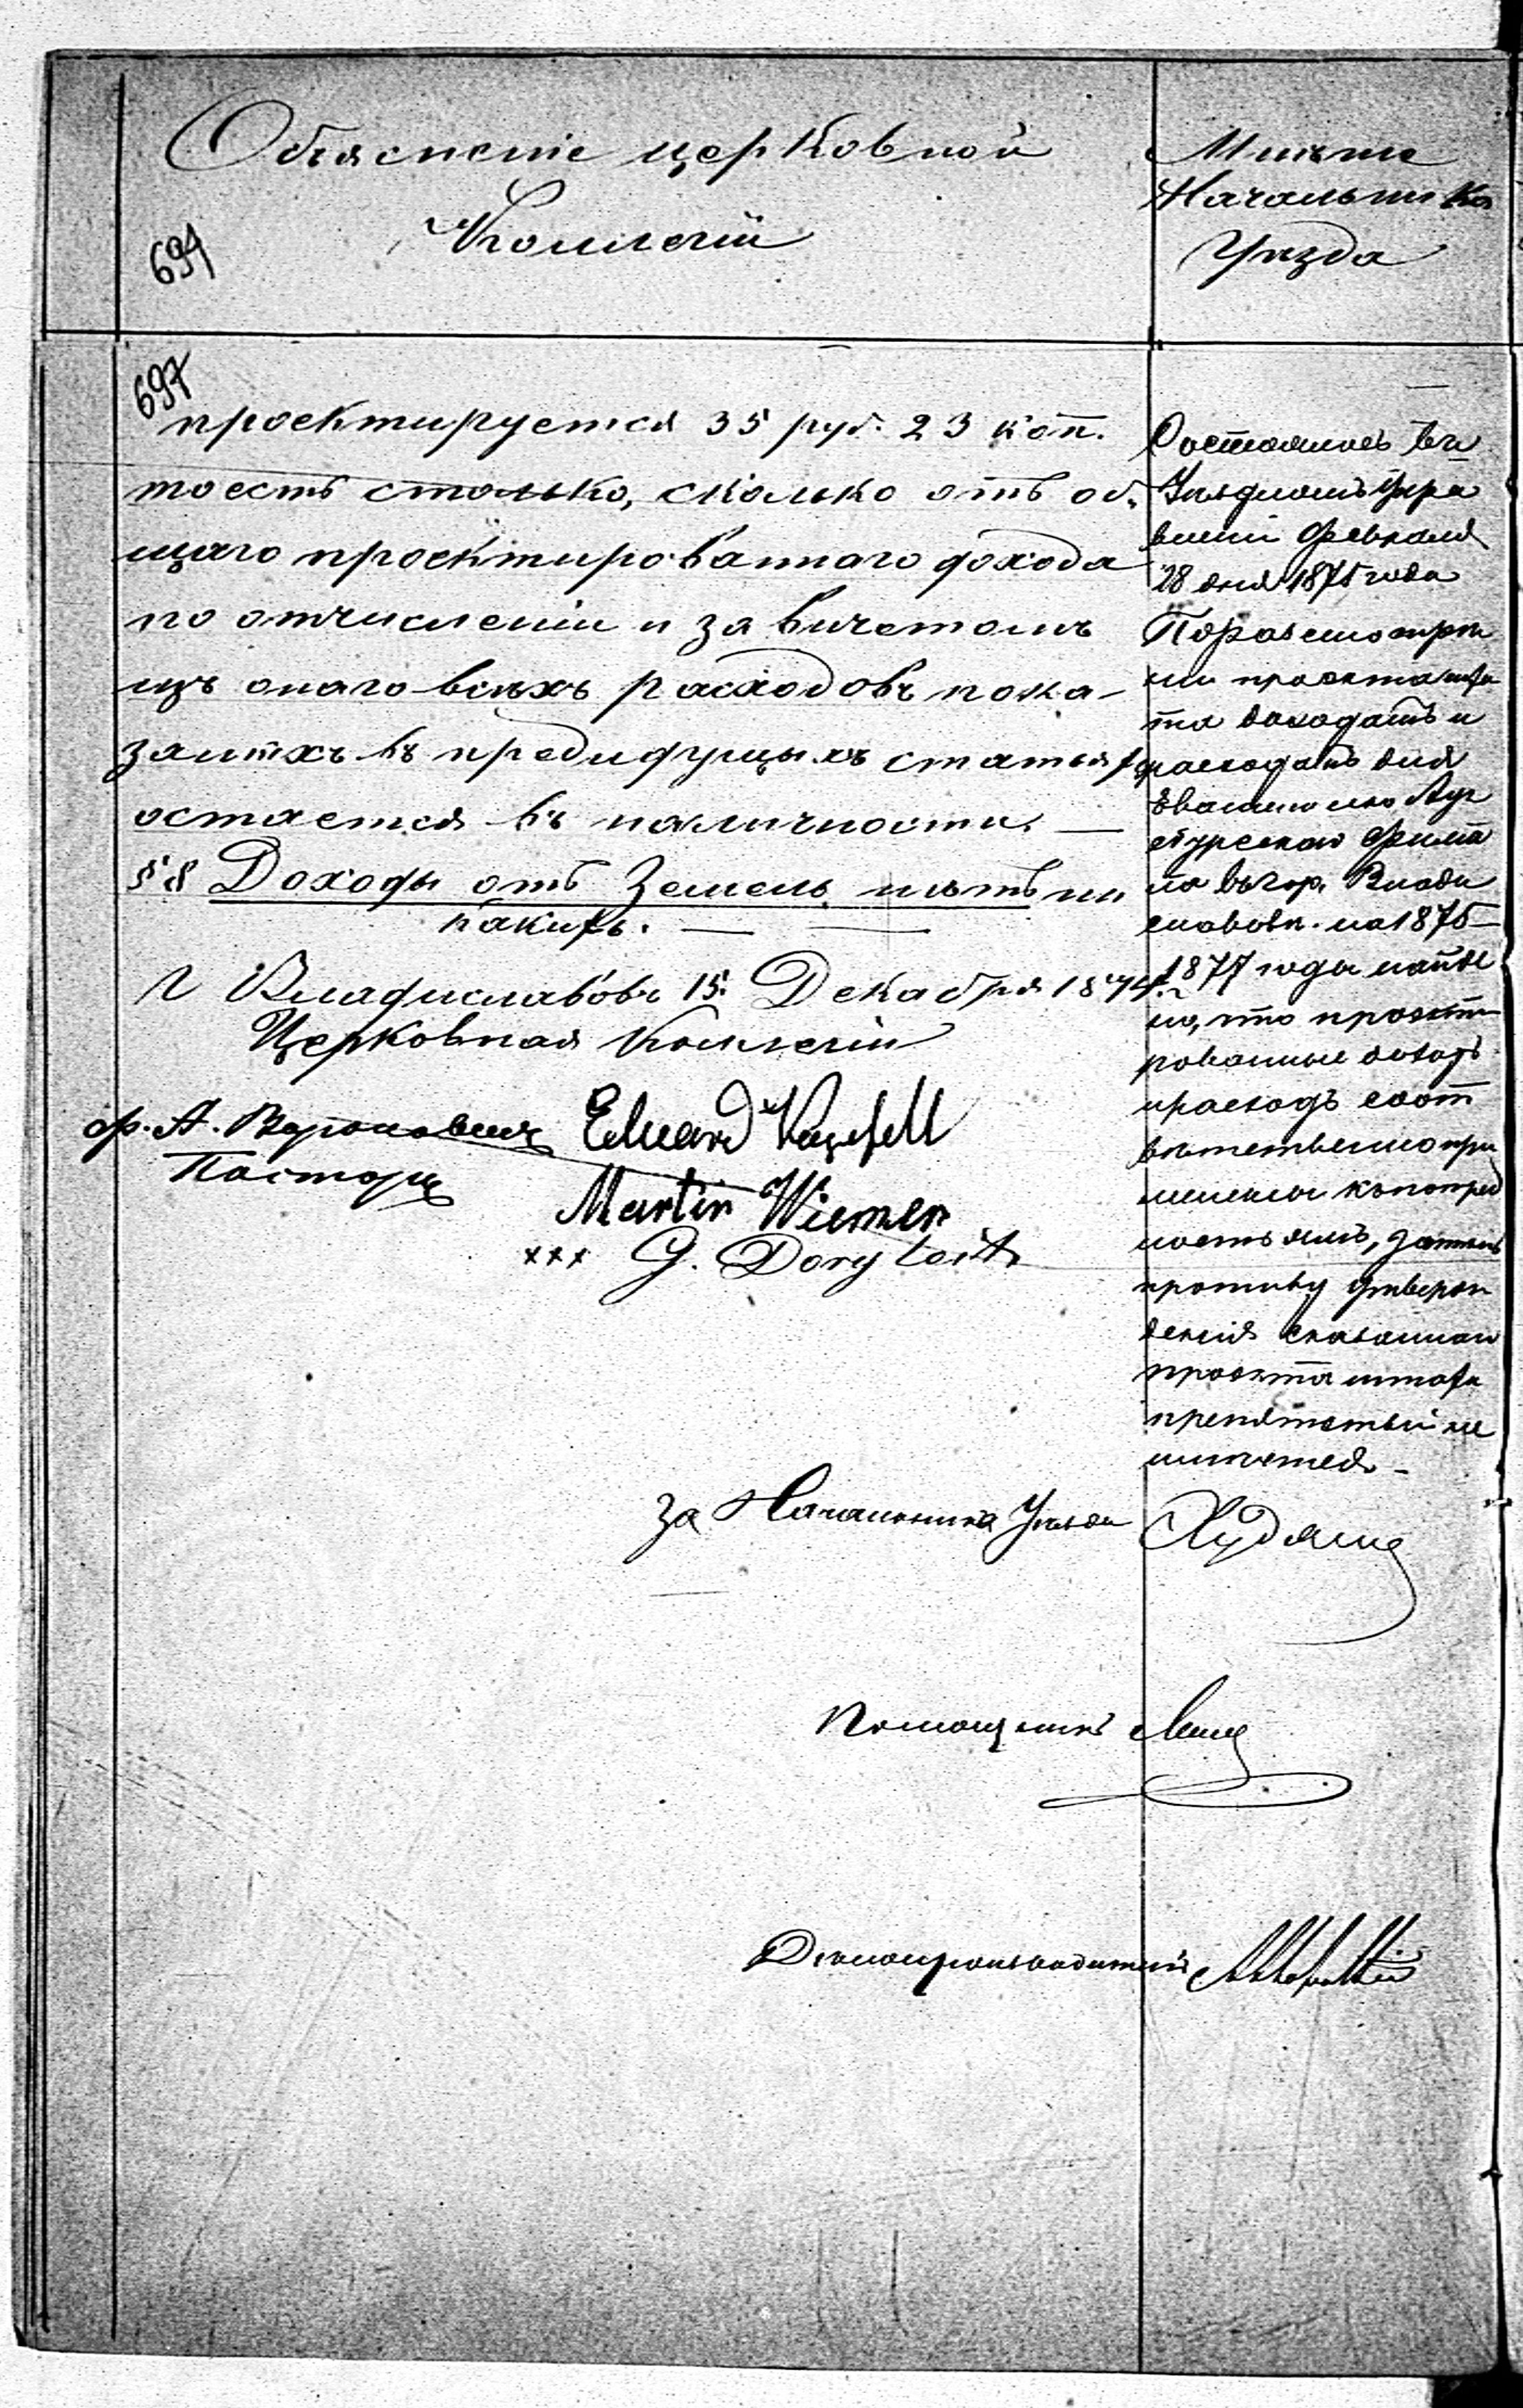 Объясненіе церковной
Коллегіи
694
Мнѣніе
Начальника
Уѣзда
697
проектируется 35 руб. 23 коп.
тоесть столько, сколько отъ об-
щаго проектированнаго дохода
по отчисленіи и за вычетомъ
изъ онаго всѣхъ расходовъ пока-
занныхъ въ предидущихъ статьяхъ
остается въ наличности. —
§ 8 Доходы отъ Земель нѣтъ ни
какихъ. — —
Г Владиславовъ 15. Декабря 1874 г.
Церковная Коллегія
Пасторъ
Eduard
Martin Wiemer
xxx G.
Состоялось въ
Уѣздномъ Упра
вленіи Февраля
28 дня 1875 года
По разсмотрѣ
ніи проекта шта
та доходамъ и
расходамъ для
Евангелическо Ауг
сбургскаго Филіа
ла въ гор. Влади
славовѣ. на 1875 —
1877 годы найде
но, что проекти
рованные доходъ
и расходъ соот
вѣтственно при
мѣнены къ потреб
ностямъ, затѣмъ
противу утверж
денія сказаннаго
проекта штата
препятствій не
имѣется. —
За Начальника Уѣзда
Помощникъ
Дѣлопроизводитель